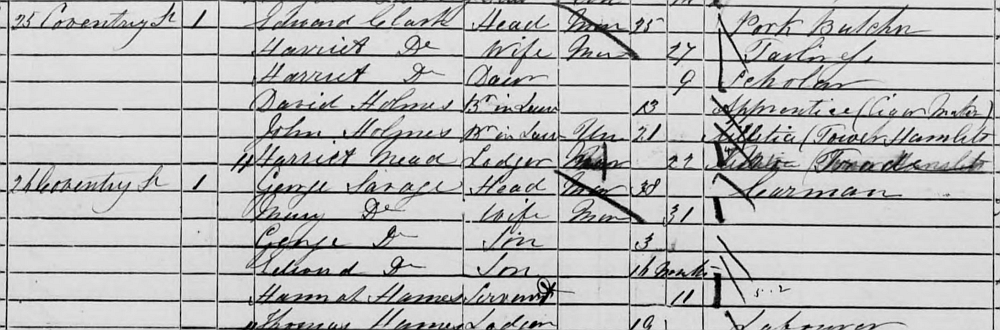 25 Coventry St 1 Edward Clark Head Mar 25 Pork Butcher
Harriet Do Wife Mar 27
Harriet Do Daur 9 Scholar
David Holmes Br in Law 13 Apprentice (Cigar Maker)
John Holmes Br in Law Un 21 Militia (Tower Hamlets
Harriet Mead Lodger 22
26 Coventry St 1 George Savage Head Mar 38 Carman
Mary Do Wife Mar 31
George Do Son 3
Edward Do Son 16 Months
Hannah Hames Servant 11
Thomas Hames Lodger 19 Labourer